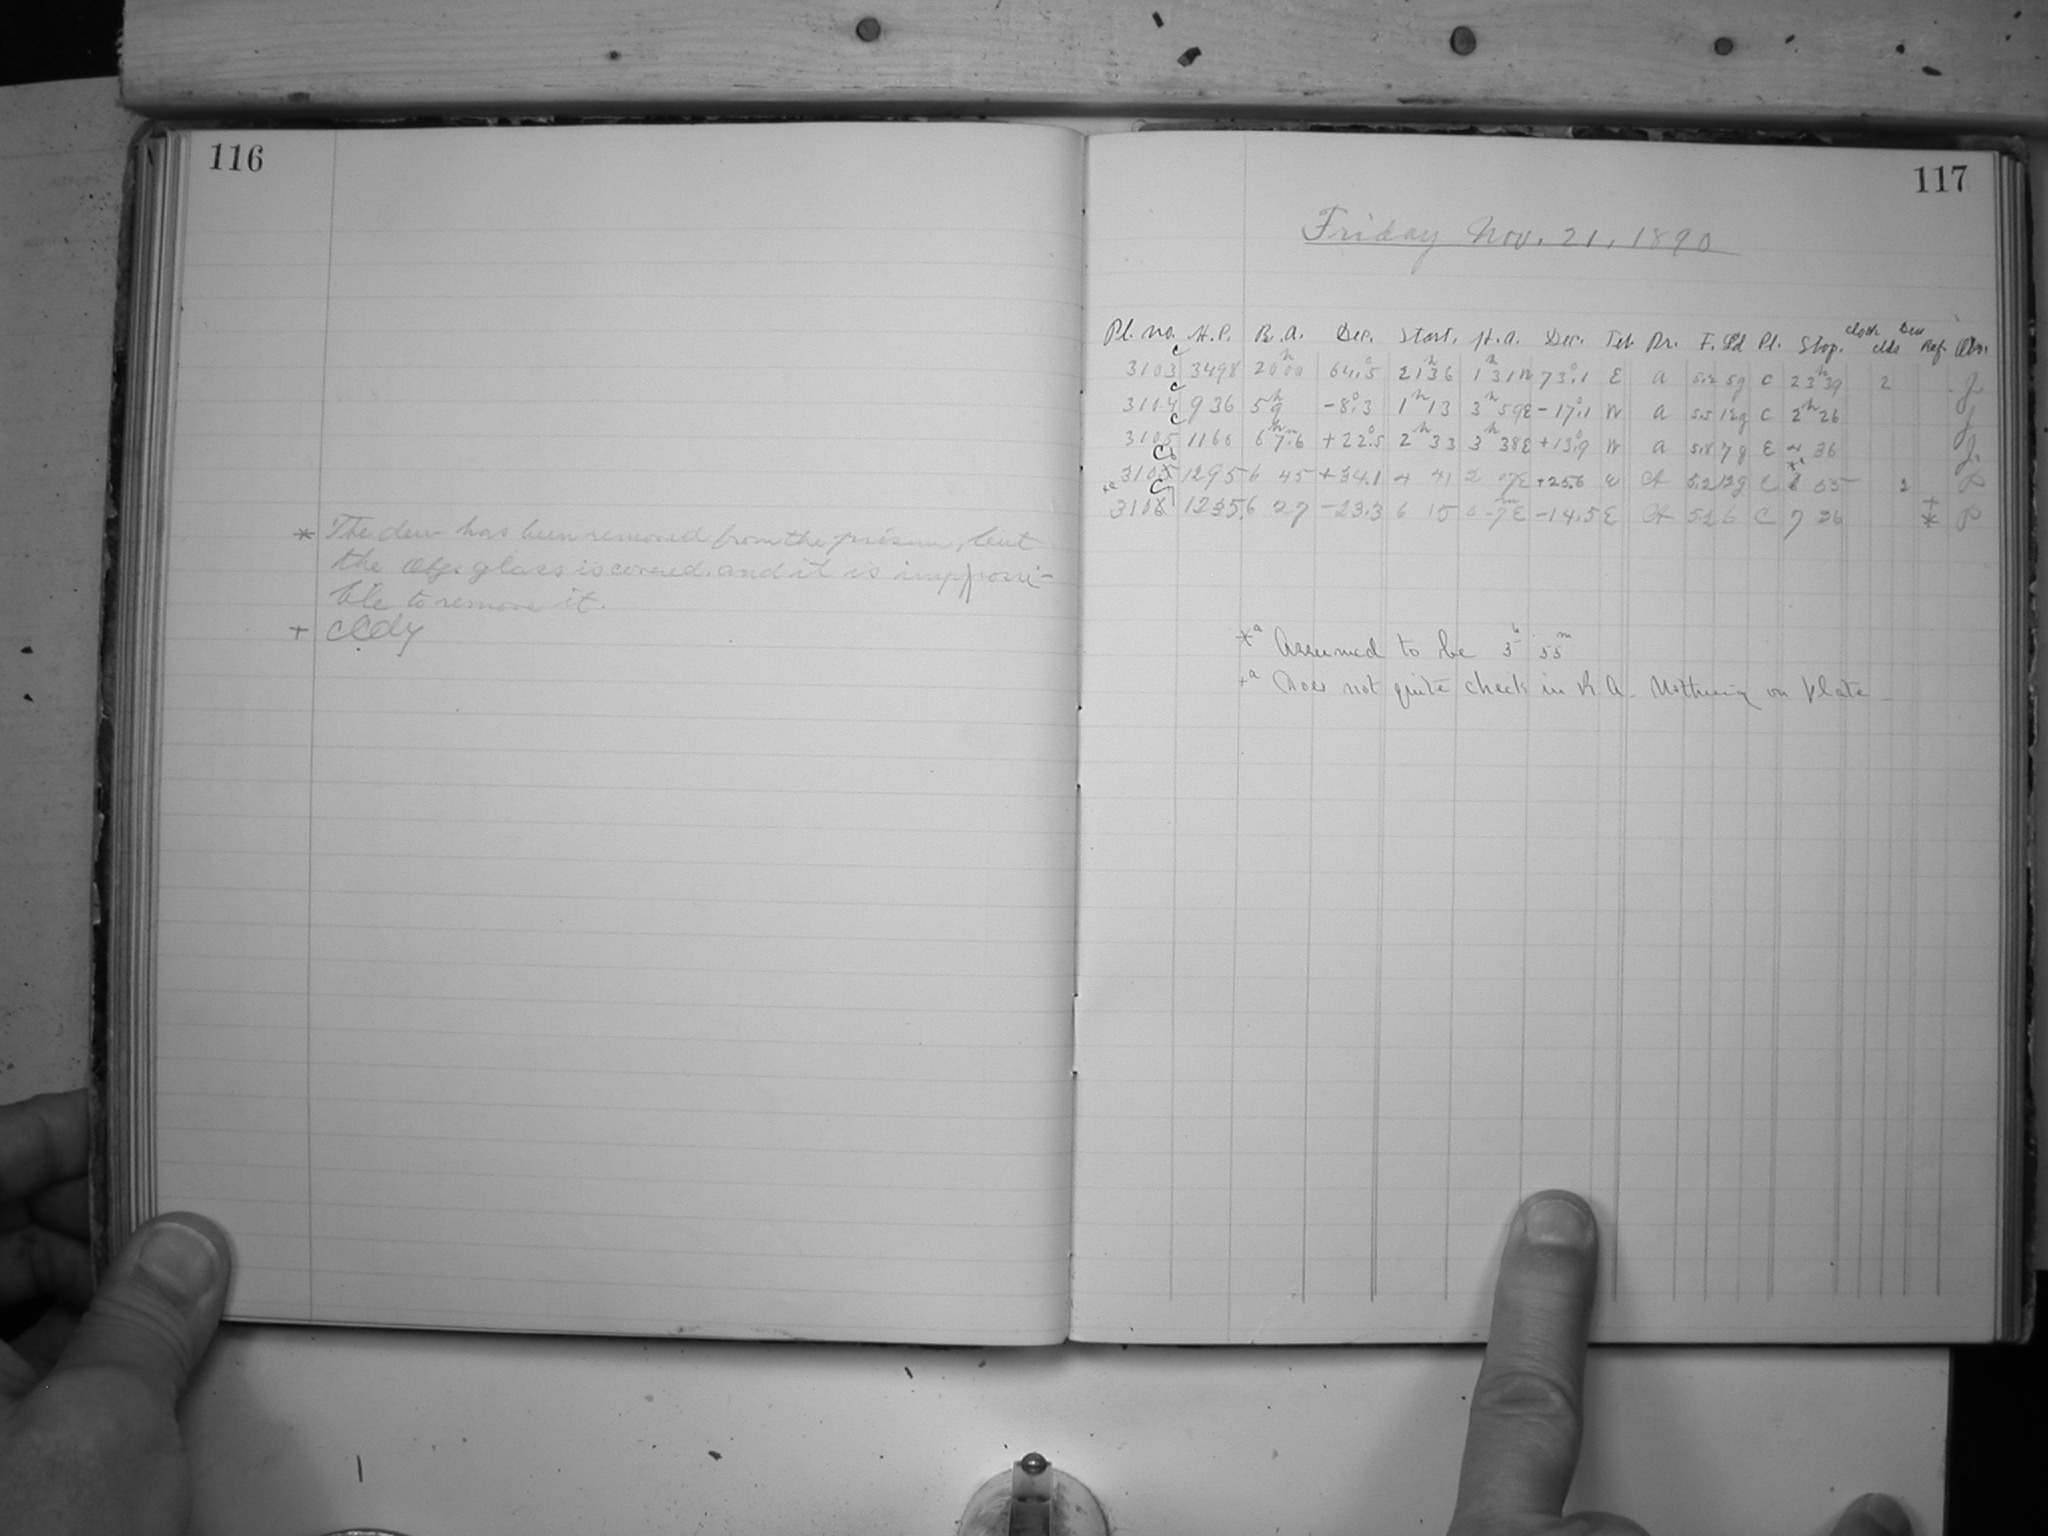 116
* The dew has been removed from the prism, but
the Obj. glass is covered and it is impossi-
ble to remove it.
+ Cldy
117
Friday Nov. 21, 1890
Pl. No. H.P. R.A. Dec. Start. H.A. Dec. Tel. Pr. F. Ld Pl. Stop. Clock clds Dew Ref. Obs.
3103 C 3498 20h 00 64°.5 21h 36 1h 31W 73°.1 E A 5.2 5g C 23h 39 2 J.
3104 C 936 5h 9 -8°.3 1h 13 3h 59E -17°.1 W A 5.5 12g C 2h 26 J
3105 C 1160 6h 7m.6 +22°.5 2h 33 3h 38E +13°.9 W A 5.8 7g E 4 36 J.
3105 C6 1295 6 45 +34.1 4 41 2 E +25.6 W A 5.2 12g C 55 2 P
+a 3106 C7 1235 6 27 -23.3 6 15 0 7m E -14.5 E A 5.2 6 C 7 36 + * P
*a Assumed to be 5h 55m
+a Does not quite check in R.A. Nothing on plate